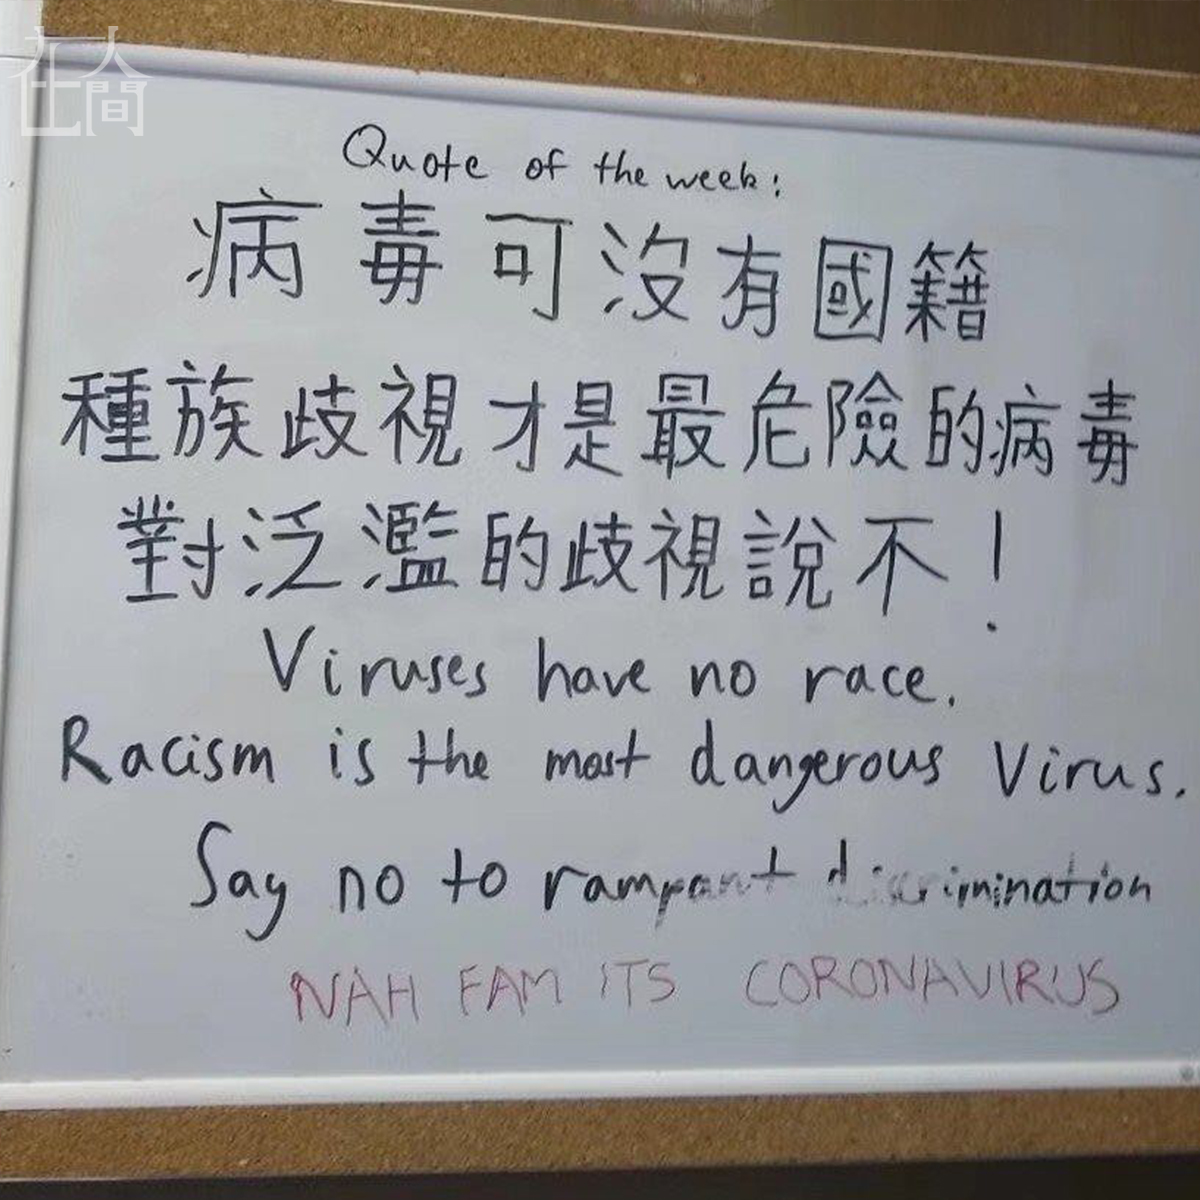 在人間
Quote of the week:
病毒可沒有國籍
種族歧視才是最危險的病毒
對泛濫的歧視說不！
Viruses have no race.
Racism is the most dangerous Virus.
Say no to rampant discrimination
NAH FAM ITS CORONAVIRUS